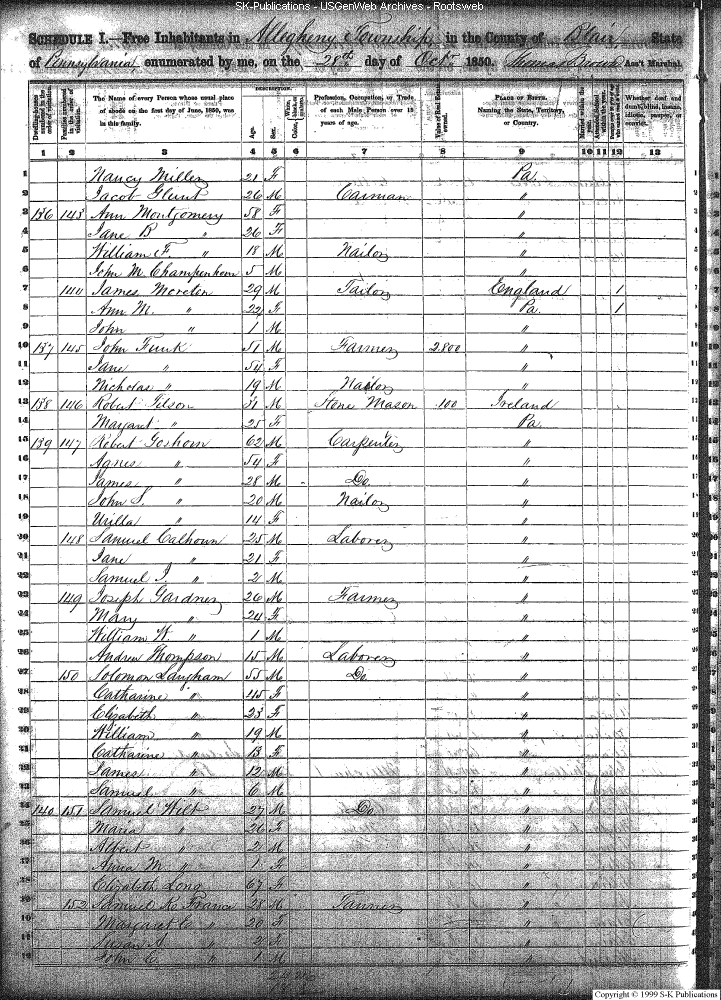 SK-Publications - USGenWeb Archives - Rootsweb
SCHEDULE I.—Free Inhabitants in Allegheny Township in the County of Blair State
of Pennsylvania enumerated by me, on the 28th day of Octr 1850. Thomas Ass't Marshal.
Dwelling-houses numbered in the order of visitation.
Families numbered in the order of visitation.
The Name of every Person whose usual place of abode on the first day of June, 1850, was in this family.
DESCRIPTION.
Age.
Sex.
White, Color,
Profession, Occupation, or Trade of each Male Person over 15 years of age.
Value of Real Estate owned.
PLACE OF BIRTH. Naming the State, Territory, or Country.
Married within the year.
Attended School within the year.
Whether deaf and dumb, blind, insane, idiotic, pauper, or convict.
1 2 3 4 5 6 7 8 9 10 11 12 13
1 Nancy Miller 21 F Pa.
2 Jacob Glunt 26 M Carman "
3 136 143 Ann Montgomery 58 F "
4 Jane B " 26 F "
5 William F. " 18 M Nailor "
6 John M. 5 M "
7 144 James Moreton 29 M Tailor England 1
8 Ann M. " 22 F Pa. 1
9 John " 1 M "
10 137 145 John Funk 51 M Farmer 2,800 "
11 Jane " 54 F "
12 Nicholas " 19 M Nailor "
13 138 146 Robert Tilson 31 M Stone Mason 100 Ireland
14 Margaret " 25 F Pa.
15 139 147 Robert Goshorn 62 M Carpenter "
16 Agnes " 54 F "
17 James " 28 M Do. "
18 John S. " 20 M Nailor "
19 Urilla " 14 F "
20 148 Samuel Calhoun 25 M Laborer "
21 Jane " 21 F "
22 Samuel J. " 2 M "
23 149 Joseph Gardner 26 M Farmer "
24 Mary " 24 F "
25 William W. " 1 M "
26 Andrew Thompson 15 M Laborer "
27 150 Solomon Langham 55 M Do. "
28 Catharine " 45 F "
29 Elizabeth " 23 F "
30 William " 19 M "
31 Catharine " 13 F "
32 James " 12 M "
33 Samuel " 6 M "
34 140 151 Samuel Wilt 27 M Do. "
35 Maria " 26 F "
36 Albert " 2 M "
37 Anna M. " 1 F "
38 Elizabeth Long 67 F "
39 152 Samuel K. 28 M Tanner "
40 Margaret C. " 20 F "
41 Susan A. " 2 F "
42 John C. " 1 M "
Copyright © 1999 S-K Publications